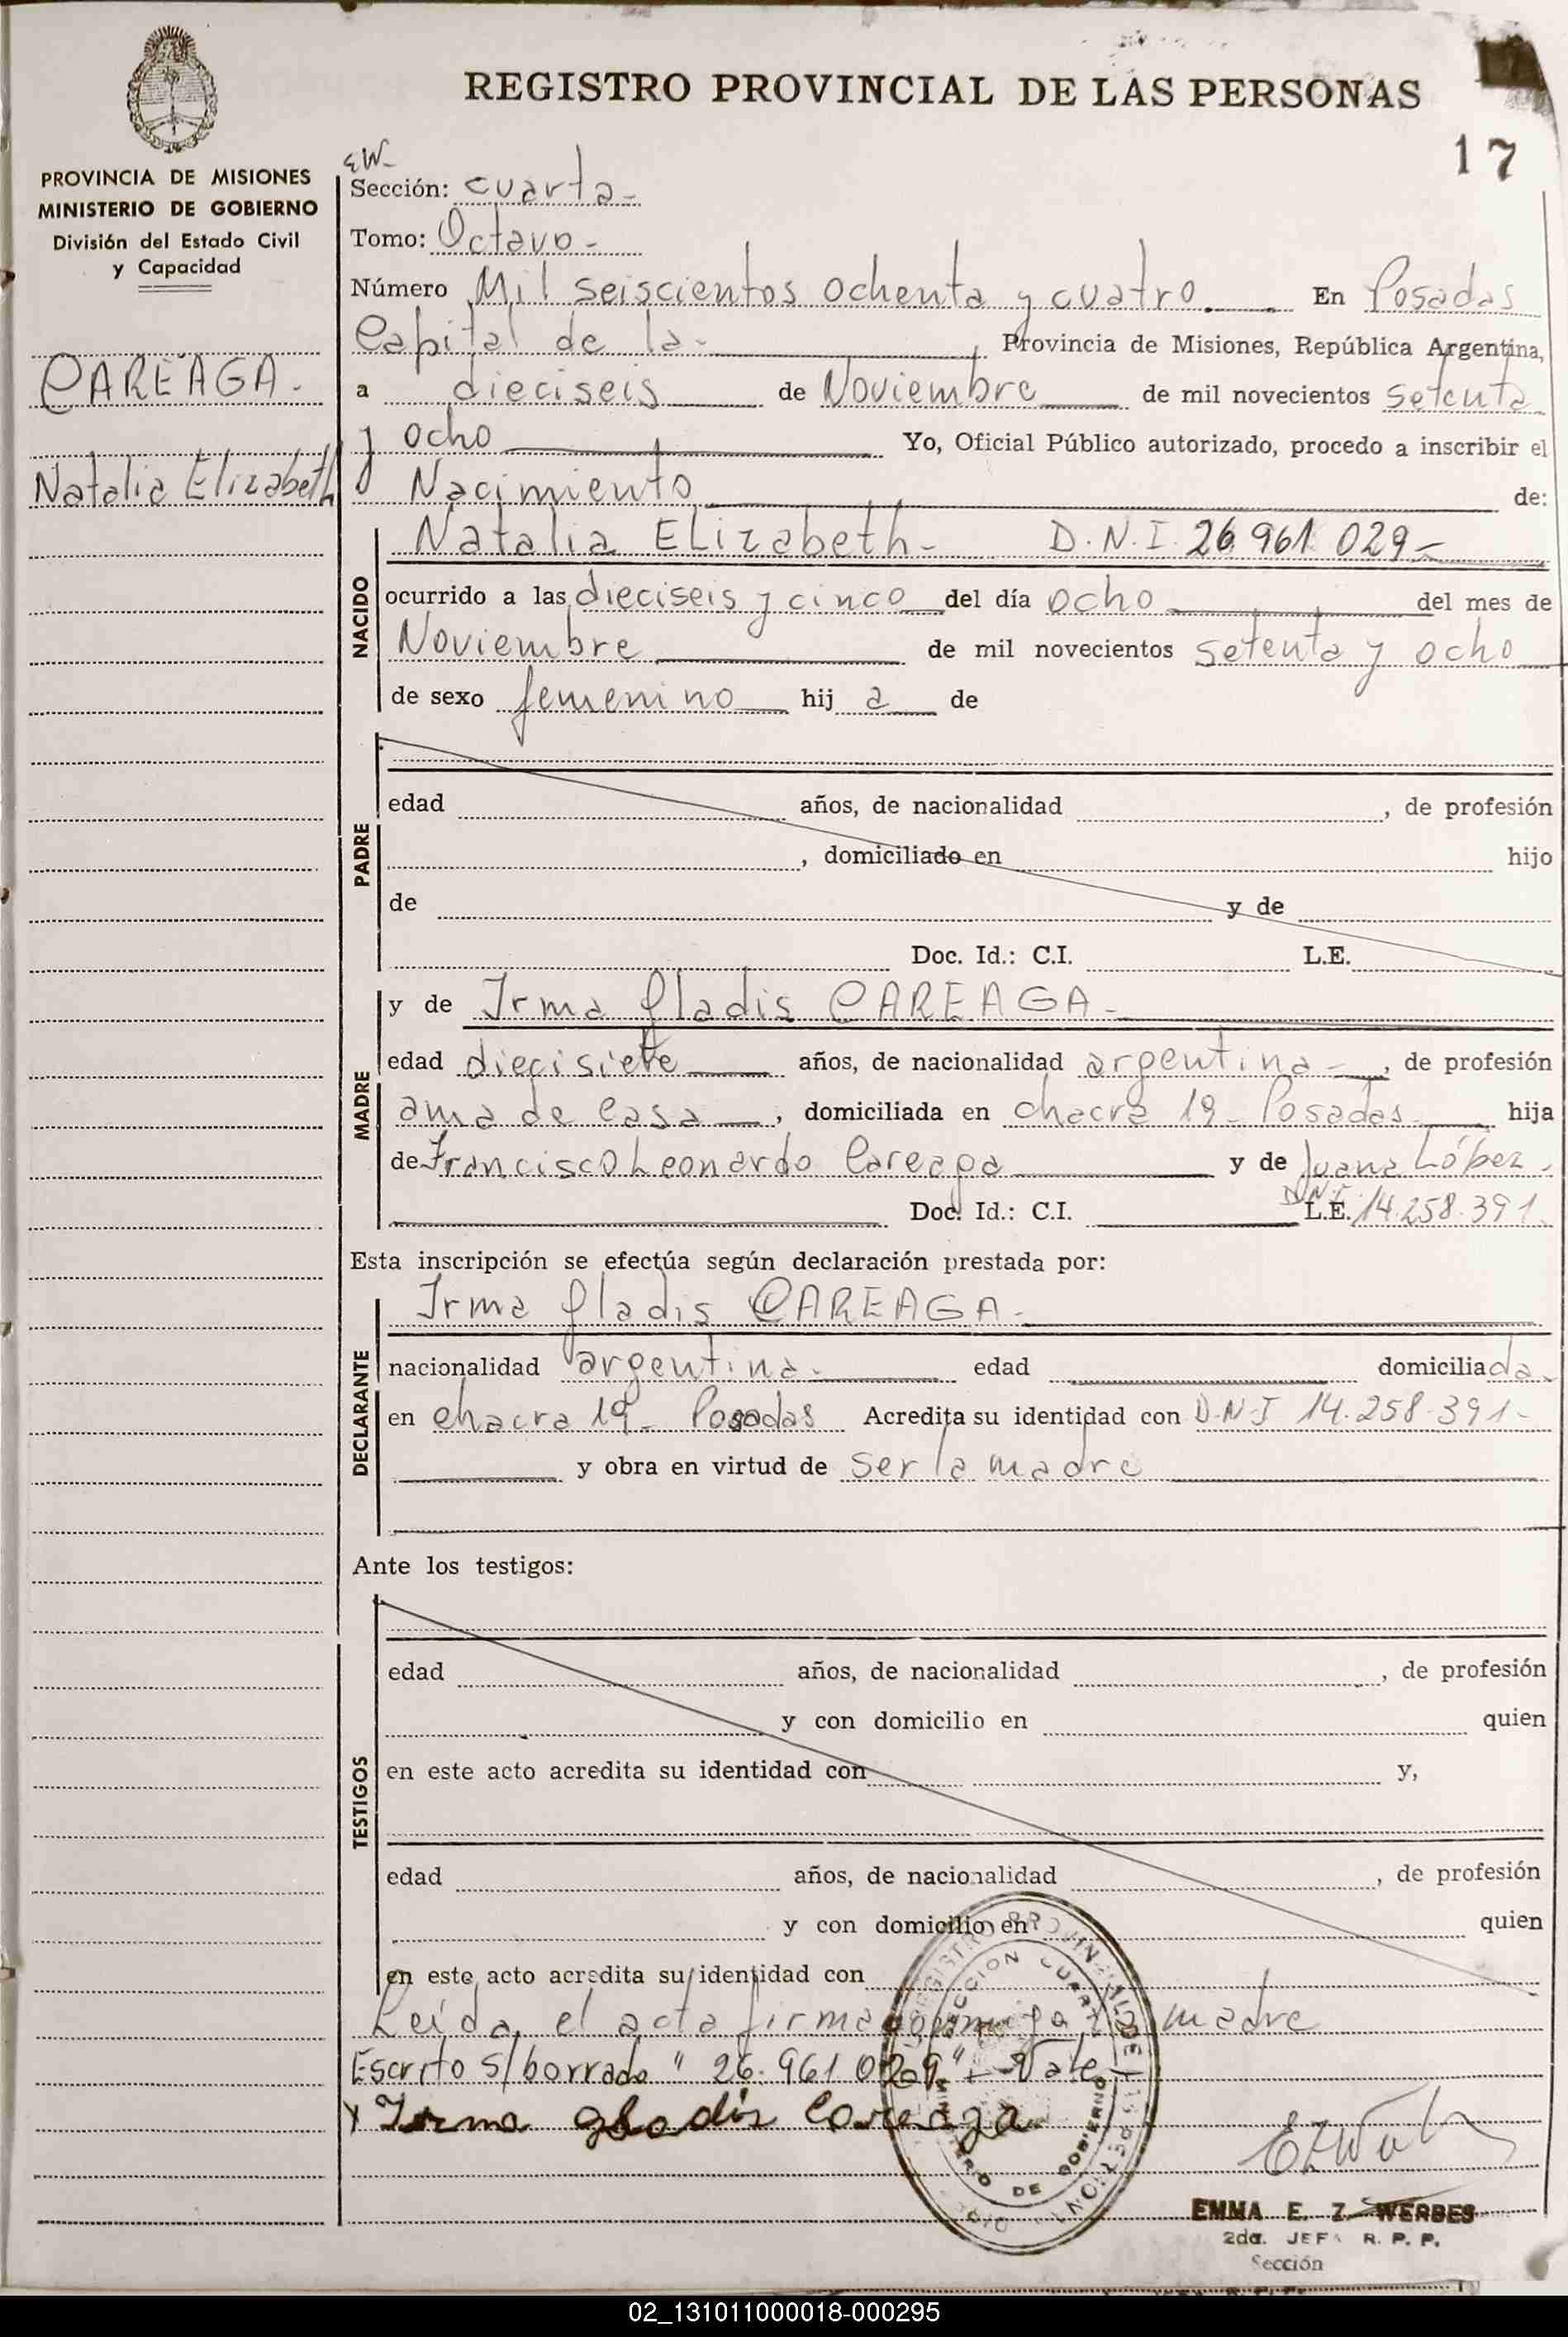 REGISTRO PROVINCIAL DE LAS PERSONAS
17
PROVINCIA DE MISIONES
MINISTERIO DE GOBIERNO
División del Estado Civil
y Capacidad
CAREAGA.
Natalia Elizabeth
EW-
Sección: cuarta-
Tomo: Octavo-
Número Mil seiscientos ochenta y cuatro En Posadas
Capital de la- Provincia de Misiones, República Argentina,
a dieciseis de Noviembre de mil novecientos setenta
y ocho Yo, Oficial Público autorizado, procedo a inscribir el
Nacimiento de:
NACIDO
Natalia ELizabeth- D.N.I. 26 961 029-
ocurrido a las dieciseis y cinco del día ocho del mes de
Noviembre de mil novecientos setenta y ocho
de sexo femenino hij a de
PADRE
edad años, de nacionalidad , de profesión
, domiciliado en hijo
de y de
Doc. Id.: C.I. L.E.
MADRE
y de Irma Gladis CAREAGA-
edad diecisiete años, de nacionalidad argentina- , de profesión
ama de casa , domiciliada en chacra 19- Posadas hija
de Francisco Leonardo Careaga y de Juana López.
Doc. Id.: C.I. D.N.I. L.E. 14.258.391.
Esta inscripción se efectúa según declaración prestada por:
DECLARANTE
Irma Gladis CAREAGA-
nacionalidad argentina- edad domiciliada
en chacra 19- Posadas Acredita su identidad con D.N.I 14.258.391-
y obra en virtud de ser la madre
Ante los testigos:
TESTIGOS
edad años, de nacionalidad , de profesión
y con domicilio en quien
en este acto acredita su identidad con y,
edad años, de nacionalidad , de profesión
y con domicilio en quien
en este acto acredita su identidad con
Leída el acta firma madre
Escrito s/borrado "26.961 029"- Vale
x Irma gladis Careaga
SECCION CUARTA
MINISTERIO DE GOBIERNO
EMMA E. Z. WERBES
2da. JEFA R. P. P.
Sección
02_131011000018-000295